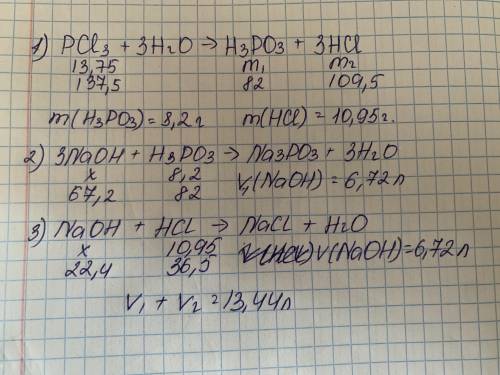 1) PCl3 + 3H2O → H3PO3 + 3HCl
13,75 m1 m2
137,5 82 109,5
m(H3PO3) = 8,2 г m(HCl) = 10,95 г.
2) 3NaOH + H3PO3 → Na3PO3 + 3H2O
x 8,2 V1(NaOH) = 6,72 л
67,2 82
3) NaOH + HCl → NaCl + H2O
x 10,95 V(NaOH) = 6,72 л
22,4 36,5
V1 + V2 = 13,44 л